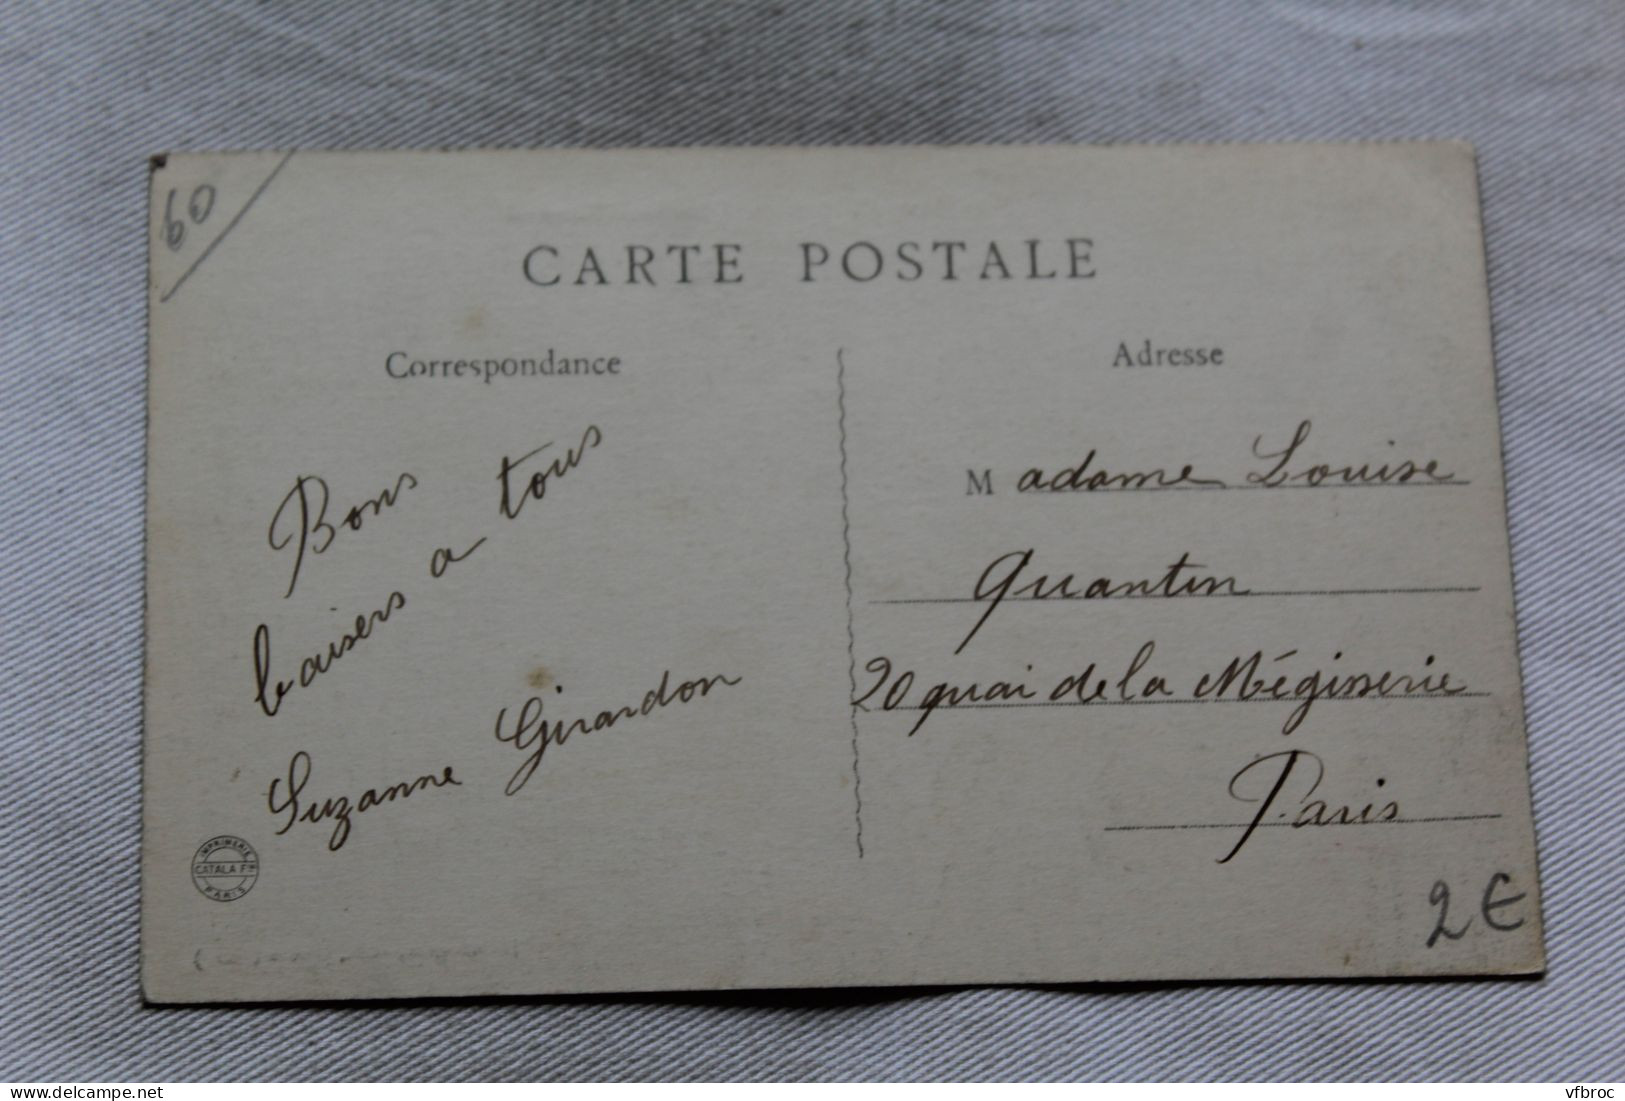 60
CARTE POSTALE
Correspondance
Bons
baisers a tous
Suzanne Girardon
IMPRIMERIE
CATALA Fres
PARIS
Adresse
Madame Louise
Quantin
20 quai de la Mégisserie
Paris
2€
www.delcampe.net
vfbroc